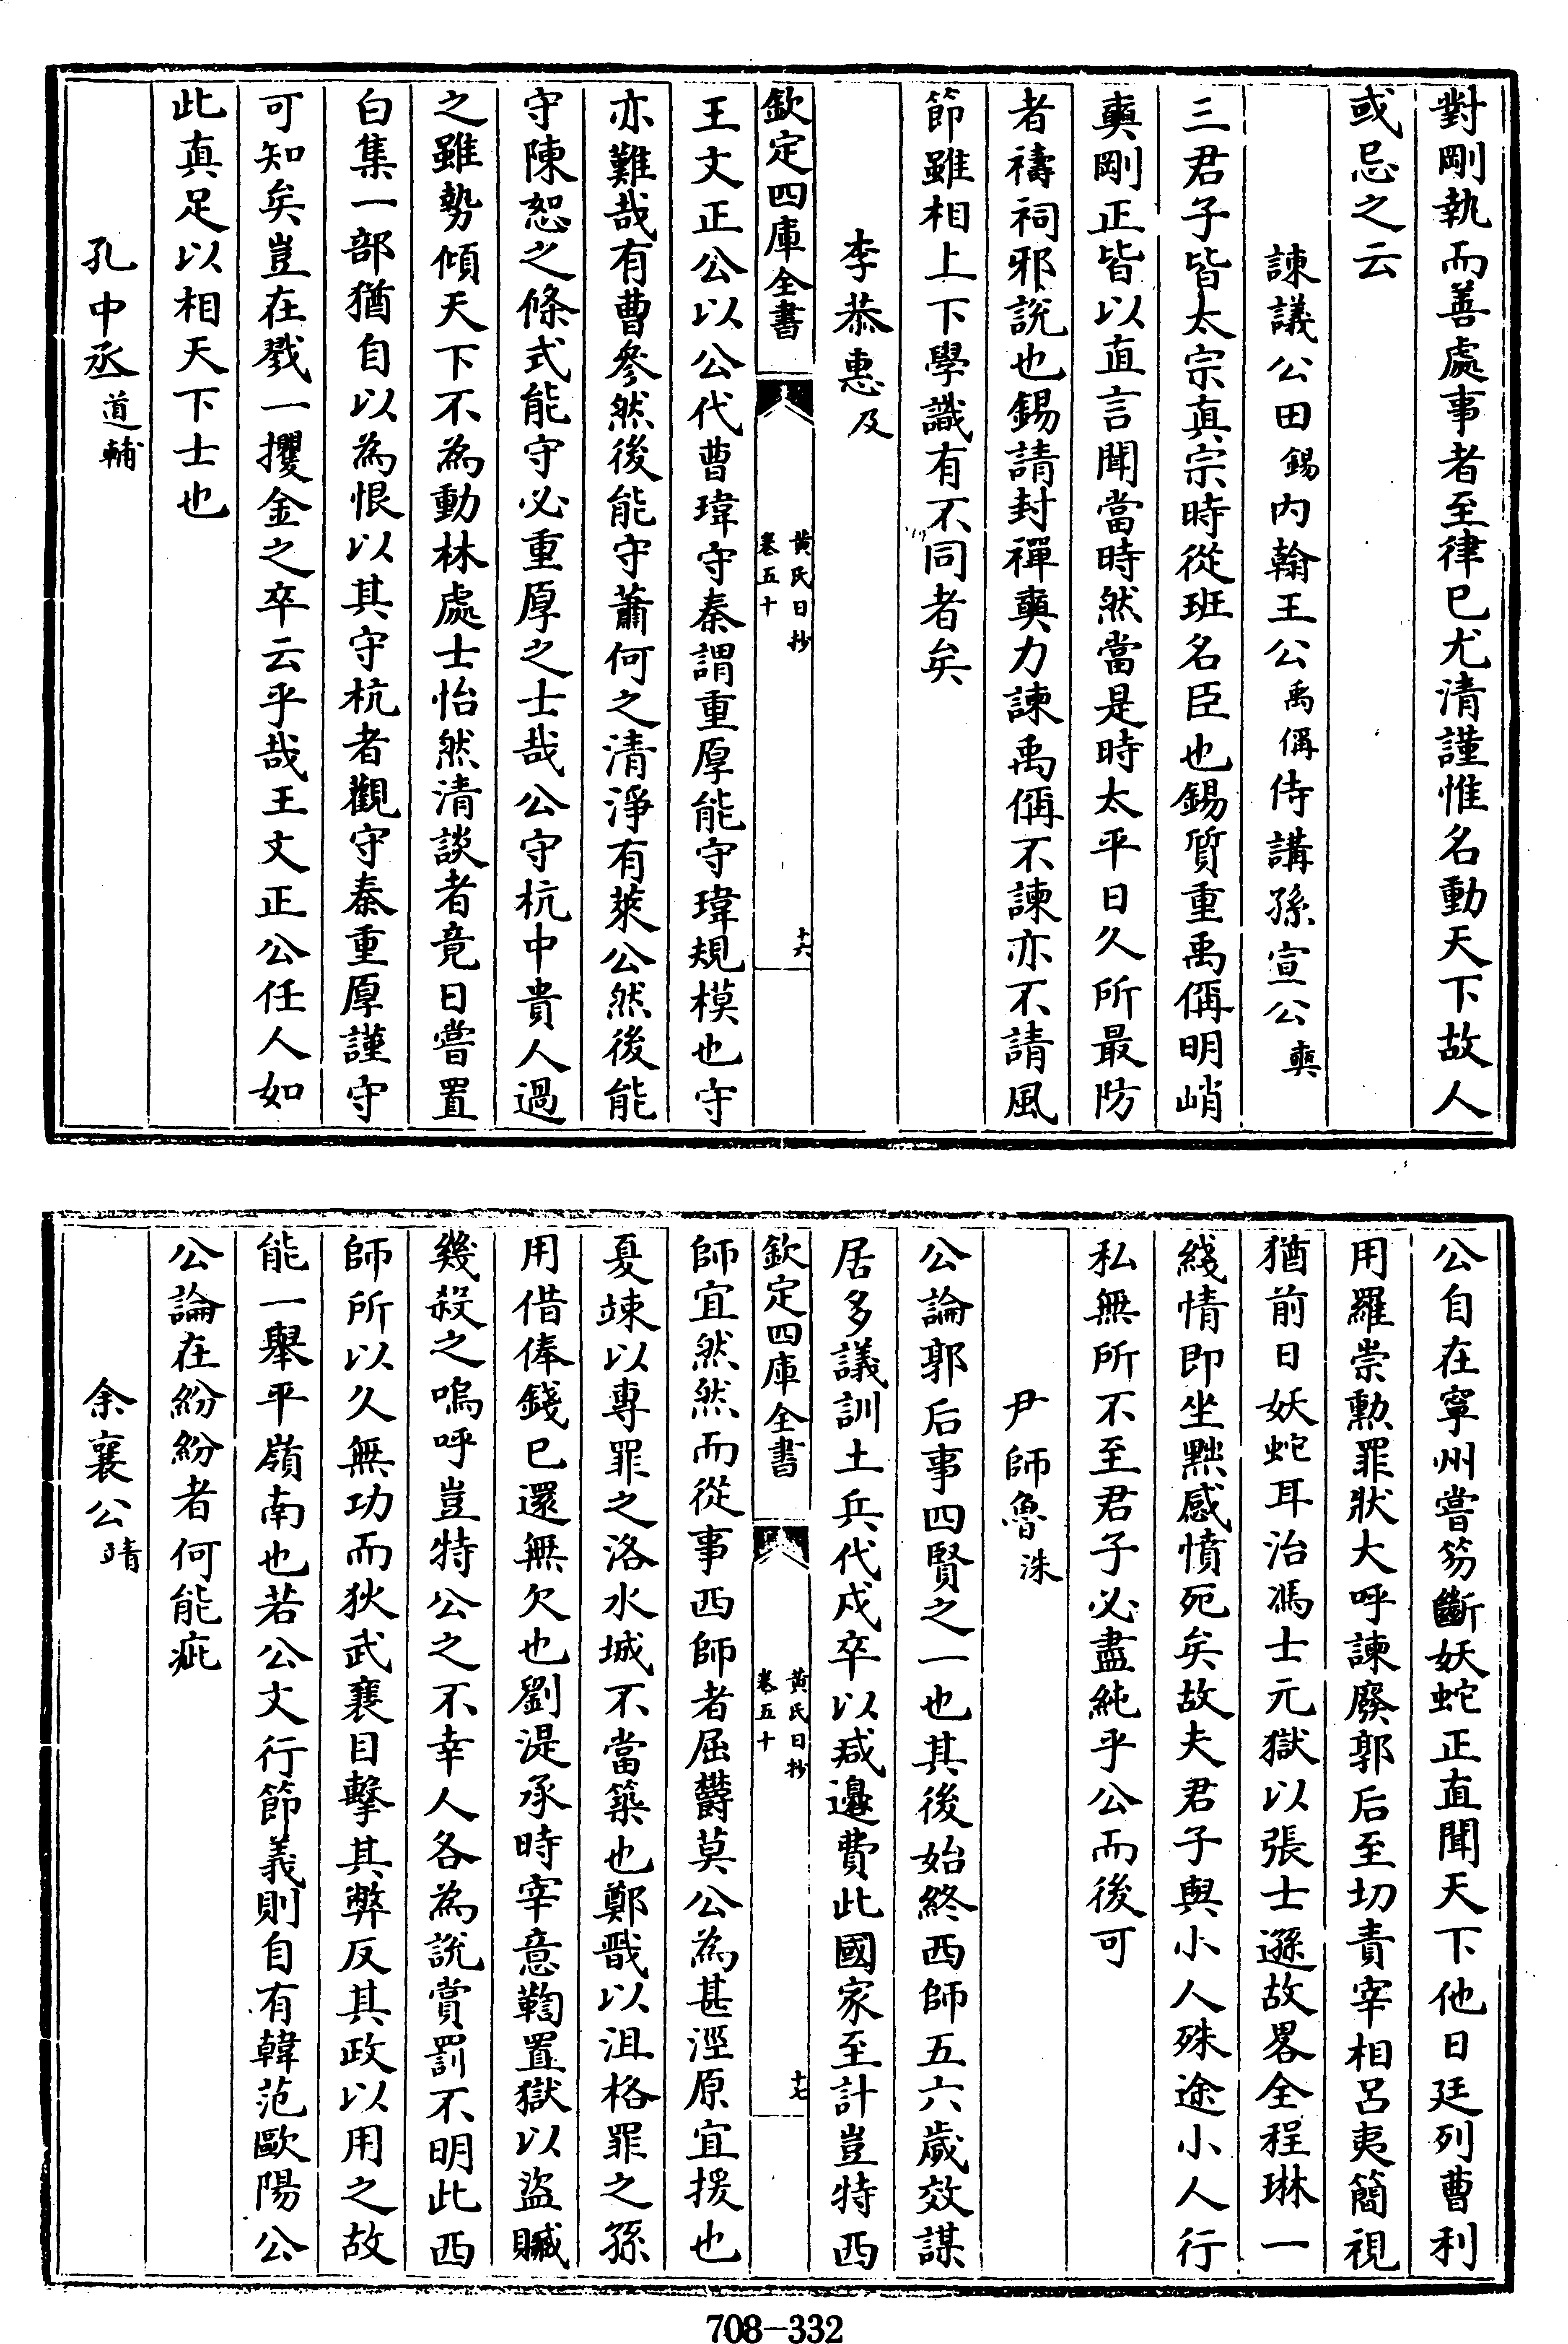 對剛執而善處事者至律已尤清謹惟名動天下故人
或忌之云
諫議公田錫内翰王公禹偁侍講孫宣公奭
三君子皆太宗真宗時從班名臣也錫質重禹偁明峭
奭剛正皆以直言聞當時然當是時太平日久所最防
者禱祠邪說也錫請封禪奭力諫禹偁不諫亦不請風
節雖相上下學識有不同者矣
李恭惠及
欽定四庫全書
黄氏日抄
卷五十
十六
王文正公以公代曹瑋守秦謂重厚能守瑋規模也守
亦難哉有曹參然後能守蕭何之清淨有萊公然後能
守陳恕之條式能守必重厚之士哉公守杭中貴人過
之雖勢傾天下不為動林處士怡然清談者竟日嘗置
白集一部猶自以為恨以其守杭者觀守秦重厚謹守
可知矣豈在戮一攫金之卒云乎哉王文正公任人如
此真足以相天下士也
孔中丞道輔
公自在寧州嘗笏斷妖蛇正直聞天下他日廷列曹利
用羅崇勲罪狀大呼諫廢郭后至切責宰相呂夷簡視
猶前日妖蛇耳治馮士元獄以張士遜故畧全程琳一
綫情即坐黜感憤死矣故夫君子與小人殊途小人行
私無所不至君子必盡純乎公而後可
尹師魯洙
公論郭后事四賢之一也其後始終西師五六歲效謀
居多議訓土兵代戍卒以减邊費此國家至計豈特西
欽定四庫全書
黄氏日抄
卷五十
十七
師宜然然而從事西師者屈欝莫公為甚涇原宜援也
夏竦以專罪之洛水城不當築也鄭戩以沮格罪之孫
用借俸錢已還無欠也劉湜承時宰意鞫置獄以盜贓
幾殺之嗚呼豈特公之不幸人各為說賞罰不明此西
師所以久無功而狄武襄目擊其弊反其政以用之故
能一舉平嶺南也若公文行節義則自有韓范歐陽公
公論在紛紛者何能疵
余襄公靖
708-332